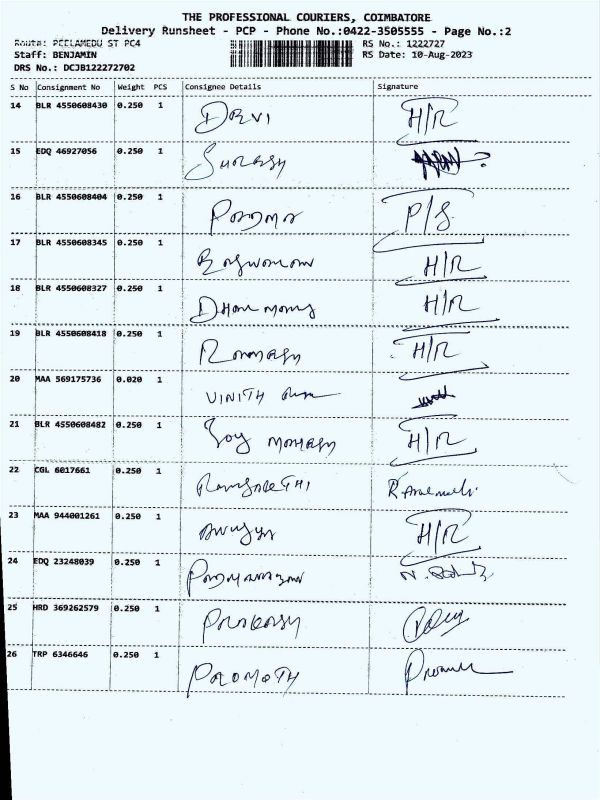 THE PROFESSIONAL COURIERS, COIMBATORE
Delivery Runsheet - PCP - Phone No.:0422-3505555 - Page No.:2
Route: PEELAMEDU ST PC4 RS No.: 1222727
Staff: BENJAMIN RS Date: 10-Aug-2023
DRS No.: DCJB122272702
S No Consignment No Weight PCS Consignee Details Signature
14 BLR 4550608430 0.250 1 DEVI H/R
15 EDQ 46927056 0.250 1 Suresh
16 BLR 4550608404 0.250 1 Padma P/S
17 BLR 4550608345 0.250 1 H/R
18 BLR 4550608327 0.250 1 H/R
19 BLR 4550608418 0.250 1 Ramesh H/R
20 MAA 569175736 0.020 1 VINITH
21 BLR 4550608482 0.250 1 H/R
22 CGL 6017661 0.250 1
23 MAA 944001261 0.250 1 H/R
24 EDQ 23248039 0.250 1
25 HRD 369262579 0.250 1 Prakash
26 TRP 6346646 0.250 1